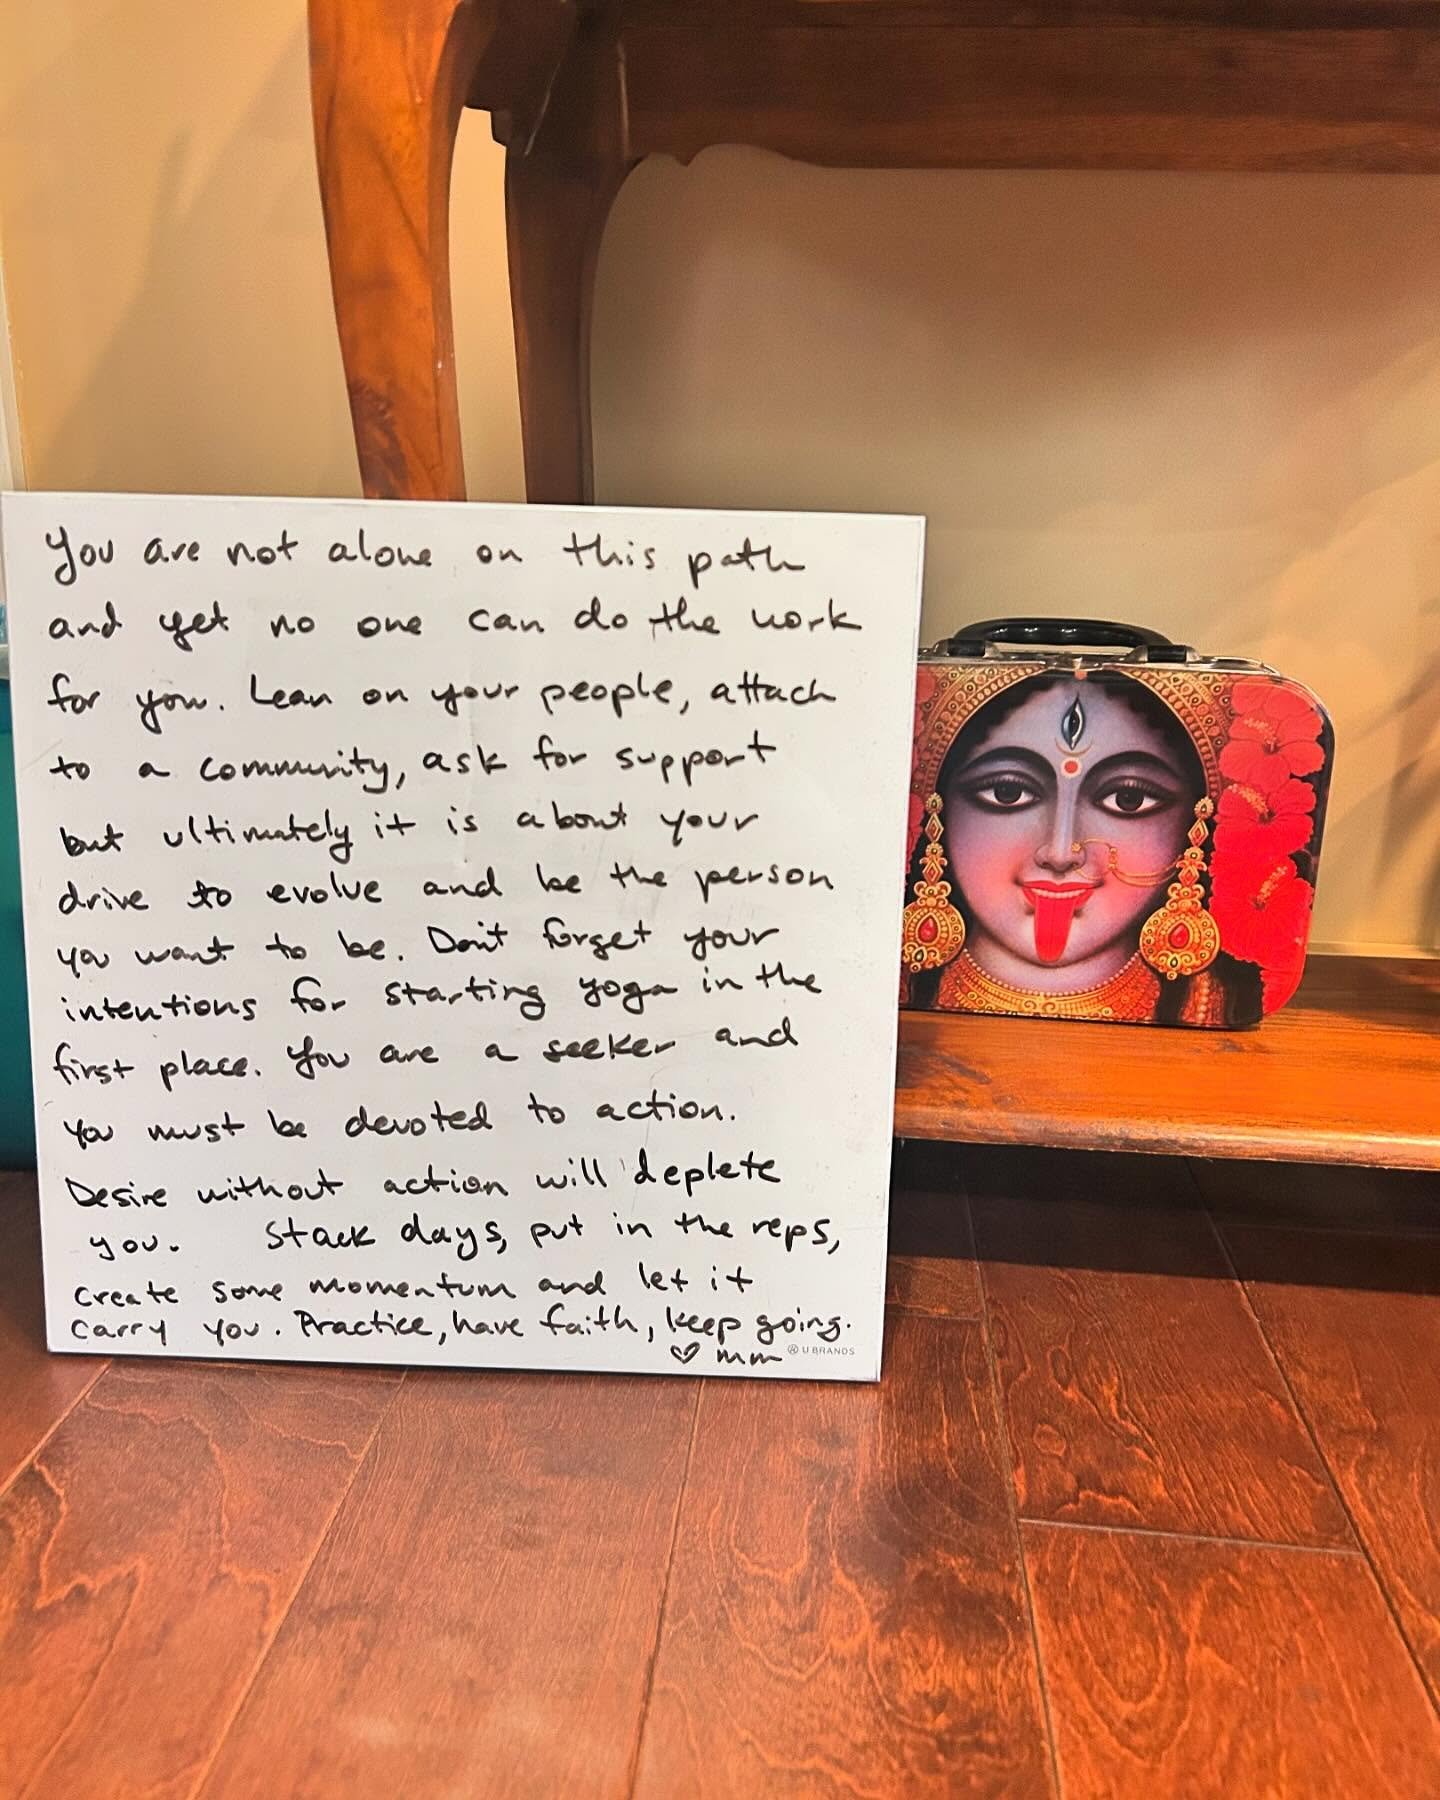 You are not alone on this path
and yet no one can do the work
for you. Lean on your people, attach
to a community, ask for support
but ultimately it is about your
drive to evolve and be the person
you want to be. Don't forget your
intentions for starting yoga in the
first place. You are a seeker and
you must be devoted to action.
Desire without action will deplete
you. Stack days, put in the reps,
create some momentum and let it
carry you. Practice, have faith, keep going.
♡ mm
U BRANDS